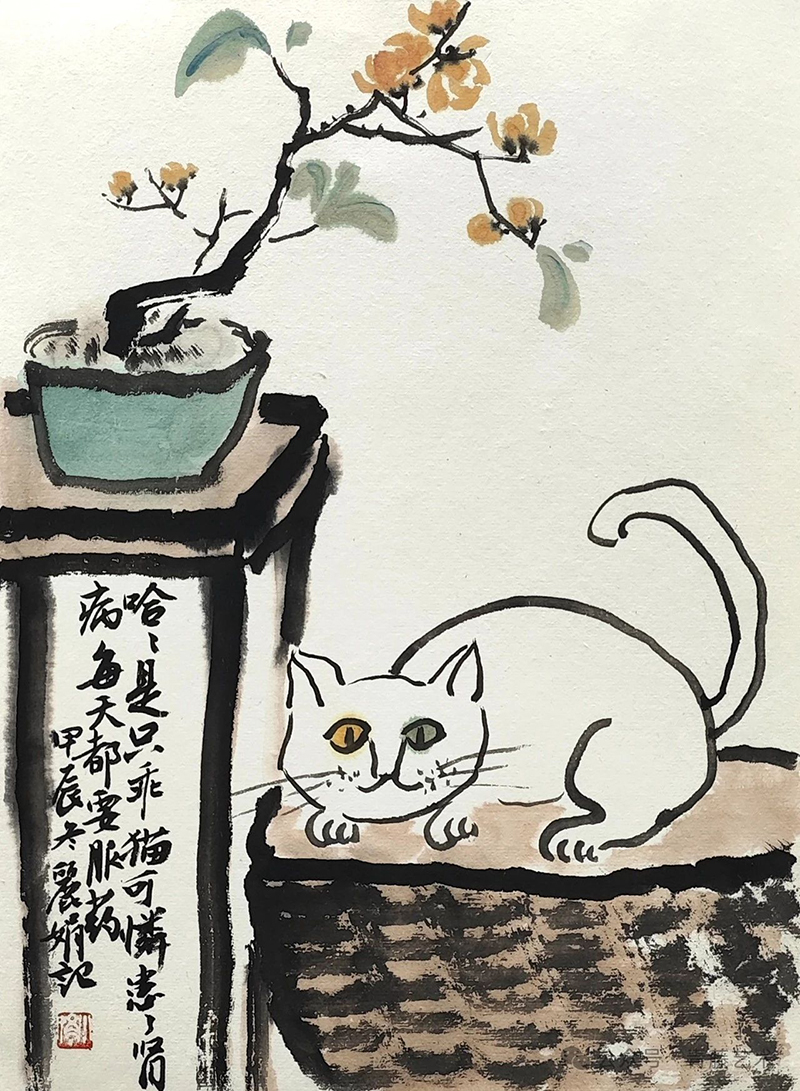 哈〻是只乖猫可憐患了肾
病每天都要服药
甲辰冬麗娟記